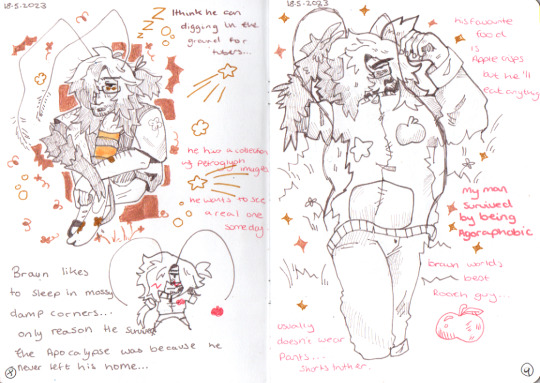 18.5.2023
I think he can
digging in the
ground for
tubers...
he has a collection
of petroglyph images
he wants to see
a real one
someday
Braun likes
to sleep in mossy
damp corners...
only reason He survived
the Apocalypse was because he
never left his home...
18.5.2023
his favourite
food
is
Apple crisps
but he'll
eat anything
My man
survived
by being
Agoraphobic
braun worlds
best
Roach guy...
usually
doesn't wear
Pants...
shorts rather.
4